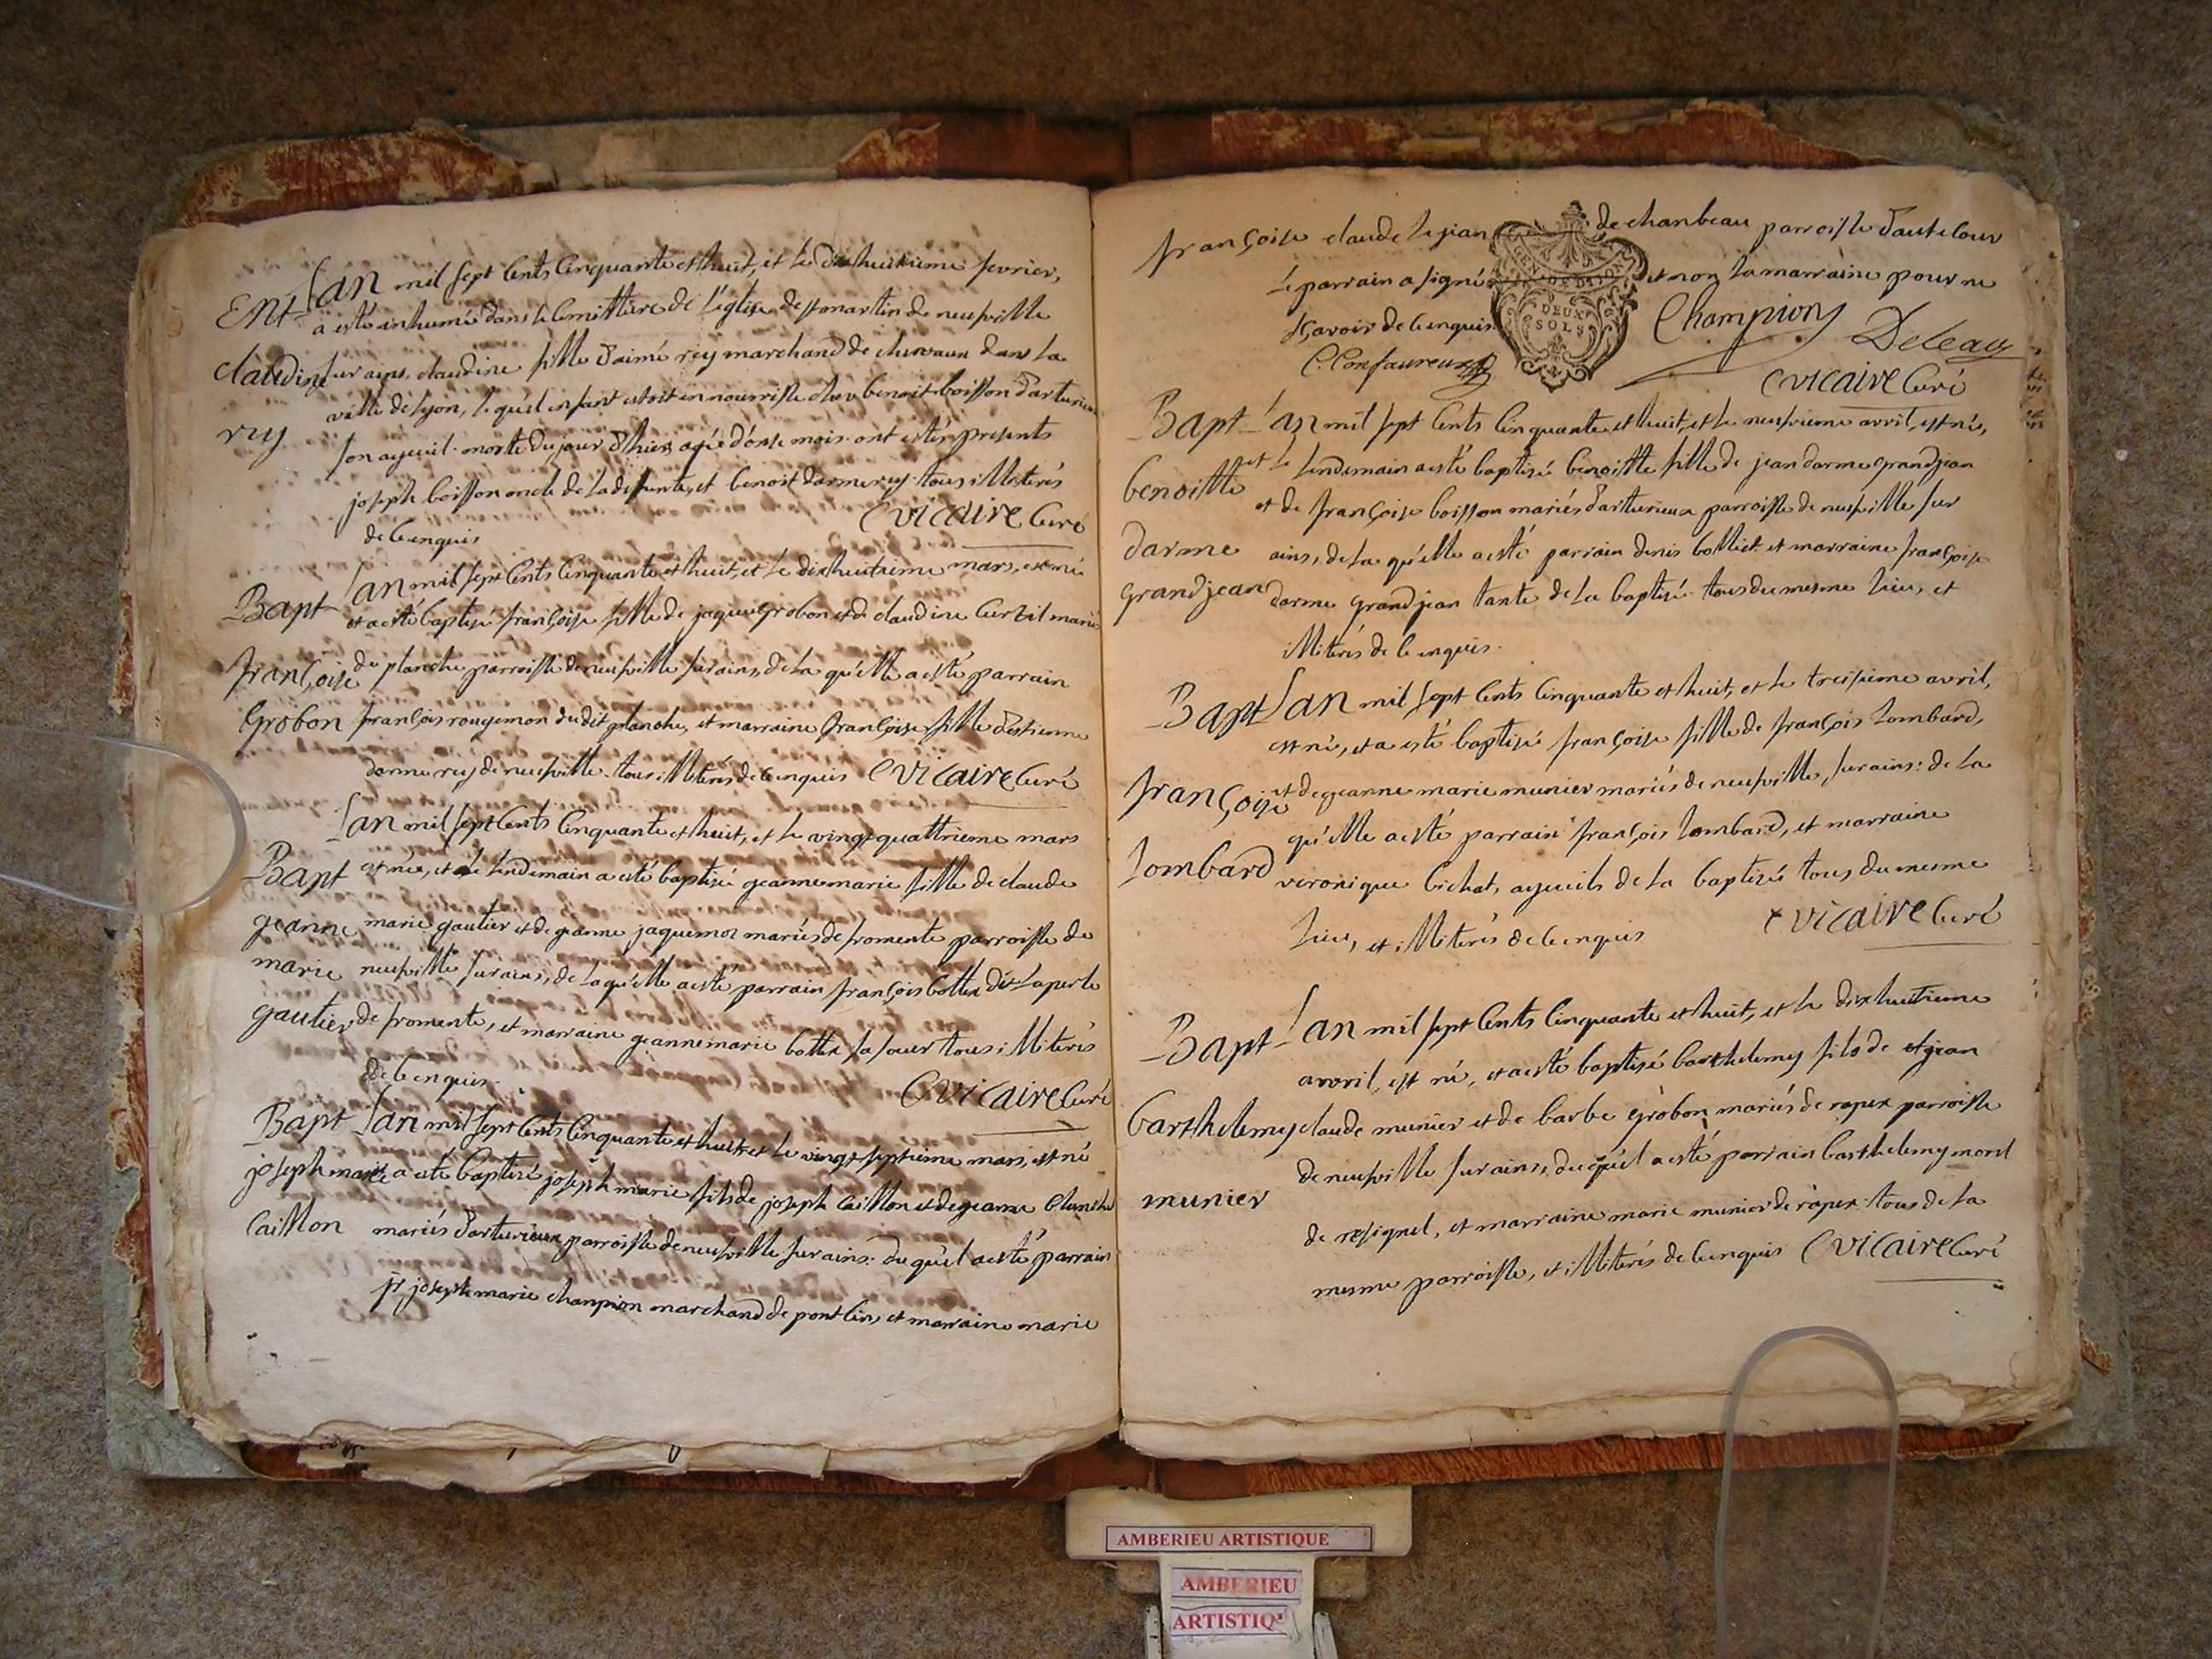 Ent Lan mil sept cents cinquante et huit, et le dix huitieme fevrier,
a esté inhumée dans le cemittiere de l'eglise de st martin de neufville
claudine sur ains, claudine fille d'aimé rey marchand de chevaux dans la
ville de lyon, le qu'el enfant estoit en nourrisse chez benoit boisson d'arturieux
rey son ayeuil. morte du jour d'hier agée d'onse mois. ont estés presents
joseph boisson oncle de la deffunte, et benoit darmerey tous illiterés
de ce enquis C vicaire curé
Bapt Lan mil sept cents cinquante et huit, et le dix huitieme mars, est née
et a esté baptisé françoise fille de jaque grobon et de claudine curtil mariés
françoise du planche parroisse de neufville sur ains, de la qu'elle a esté parrain
Grobon françois rougemon du dit planche, et marraine françoise fille d'estienne
darmerey de neufville. tous illiterés de ce enquis C vicaire curé
Lan mil sept cents cinquante et huit, et le vingt quattrieme mars
Bapt est née, et le lendemain a esté baptisé jeanne marie fille de claude
jeanne marie gautier et de jeanne jaquemoz mariés de fromente parroisse de
marie neufville sur ains, de la qu'elle a esté parrain françois bottex dit laperle
gautier de fromente, et marraine jeanne marie bottex sa sœur tous illiterés
de ce enquis. C vicaire curé
Bapt Lan mil sept cents cinquante et huit et le vingt septieme mars, est né
joseph marie a esté baptisé joseph marie fils de joseph caillon et de jeanne
Caillon mariés d'arturieux parroisse de neufville sur ains: du qu'el a esté parrain
sr joseph marie chanpion marchand de pont d'ain, et marraine marie
françoise claude lejean de chanbeau parroisse d'
le parrain a signé et non la marraine pour ne
GEN. DE DIJON
DEUX
SOLS
sçavoir de ce enquis. Champion
C. Confavreux Deleau
C vicaire curé
Bapt Lan mil sept cents cinquante et huit, et le neufvieme avril, est née,
et le lendemain a esté baptisé benoitte fille de jean darme grandjean
benoitte et de françoise boisson mariés d'arturieux parroisse de neufville sur
darme ains, de la qu'elle a esté parrain denis bolliet et marraine françoise
grandjean darme grandjean tante de la baptisé. tous du mesme lieu, et
illiterés de ce enquis.
Bapt Lan mil sept cents cinquante et huit, et le treisieme avril,
est née, et a esté baptisé françoise fille de françois lombard,
françoise et de jeanne marie munier mariés de neufville sur ains: de la
qu'elle a esté parrain françois lombard, et marraine
lombard veronique bichat, ayeuils de la baptisés tous du mesme
lieu, et illiterés de ce enquis C vicaire curé
Bapt Lan mil sept cents cinquante et huit, et le dix huitieme
avvril, est né, et a esté baptisé barthelemy fils de jean
barthelemy claude munier et de barbe grobon mariés de rapex parroisse
de neufville sur ains, du qu'el a esté parrain barthelemy morel
munier de resignel, et marraine marie munier de rapex. tous de la
mesme parroisse, et illiterés de ce enquis C vicaire curé
AMBERIEU ARTISTIQUE
AMBERIEU
ARTISTIQ